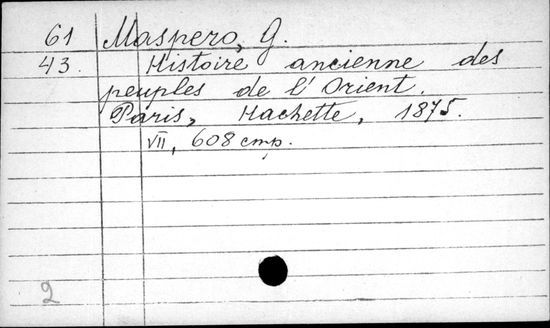 61 Maspero, G.
43. Histoire ancienne des
peuples de l'Orient.
Paris, Hachette, 1875.
VII, 608 стр.
2